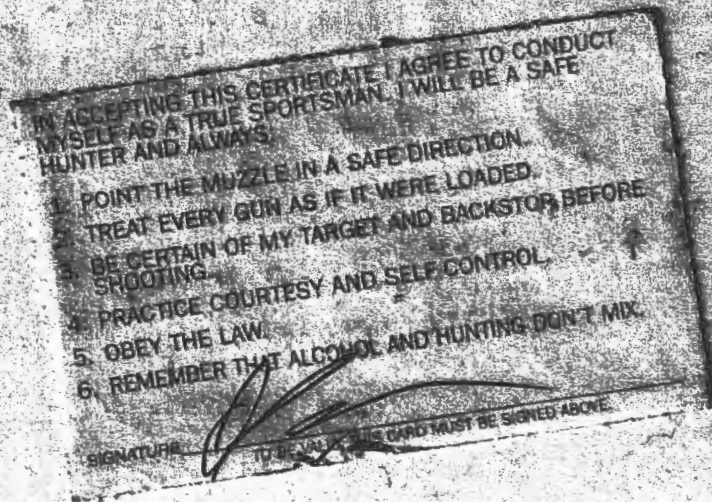 IN ACCEPTING THIS CERTIFICATE I AGREE TO CONDUCT
MYSELF AS A TRUE SPORTSMAN. I WILL BE A SAFE
HUNTER AND ALWAYS:
1. POINT THE MUZZLE IN A SAFE DIRECTION.
2. TREAT EVERY GUN AS IF IT WERE LOADED.
3. BE CERTAIN OF MY TARGET AND BACKSTOP BEFORE
SHOOTING.
4. PRACTICE COURTESY AND SELF CONTROL.
5. OBEY THE LAW.
6. REMEMBER THAT ALCOHOL AND HUNTING DON'T MIX.
SIGNATURE
TO BE VALID THIS CARD MUST BE SIGNED ABOVE.